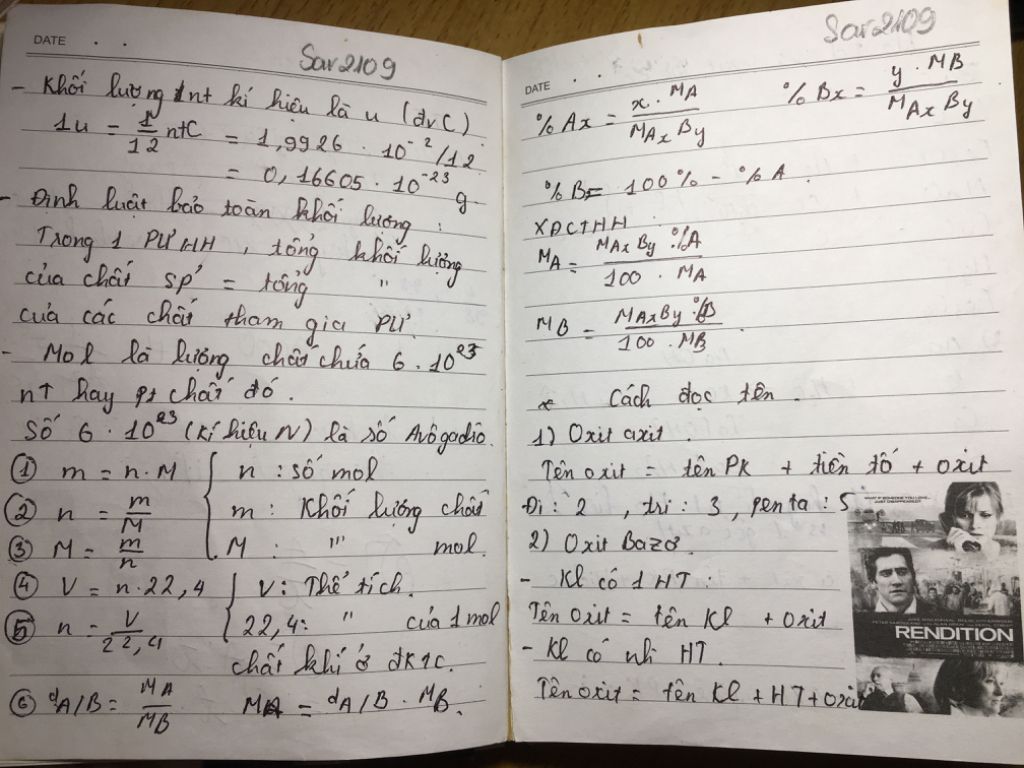 DATE
Sav2109
- Khối lượng 1nt kí hiệu là u (đvC)
1u = 1/12 ntC = 1,9926 . 10⁻²/12
= 0,16605 . 10⁻²³ g
- Định luật bảo toàn khối lượng :
Trong 1 PƯHH, tổng khối lượng
của chất sp' = tổng "
của các chất tham gia PƯ.
- Mol là lượng chất chứa 6 . 10²³
nt hay pt chất đó.
Số 6 . 10²³ (kí hiệu N) là số Avôgadio.
① m = n.M { n : số mol
② n = m/M m : Khối lượng chất
③ M = m/n M : "' mol.
④ V = n.22,4 { V: Thể tích.
⑤ n = V/22,4 22,4: " của 1 mol
chất khí ở đktc.
⑥ dA/B = MA/MB MA = dA/B . MB.
Sav2109
DATE
%Ax = x . MA/MAxBy %Bx = y . MB/MAxBy
%B = 100% - %A
XĐCTHH
MA = MAxBy . %A/100 . MA
MB = MAxBy . %B/100 . MB
* Cách đọc tên.
1) Oxit axit.
Tên oxit = tên PK + tiền tố + oxit
Đi : 2, tri : 3, penta : 5
2) Oxit Bazơ.
- Kl có 1 HT :
Tên Oxit = tên Kl + Oxit
- Kl có nhi HT.
Tên oxit = tên Kl + HT + Oxit
WHAT IF SOMEONE YOU LOVE...
JUST DISAPPEARED?
RENDITION